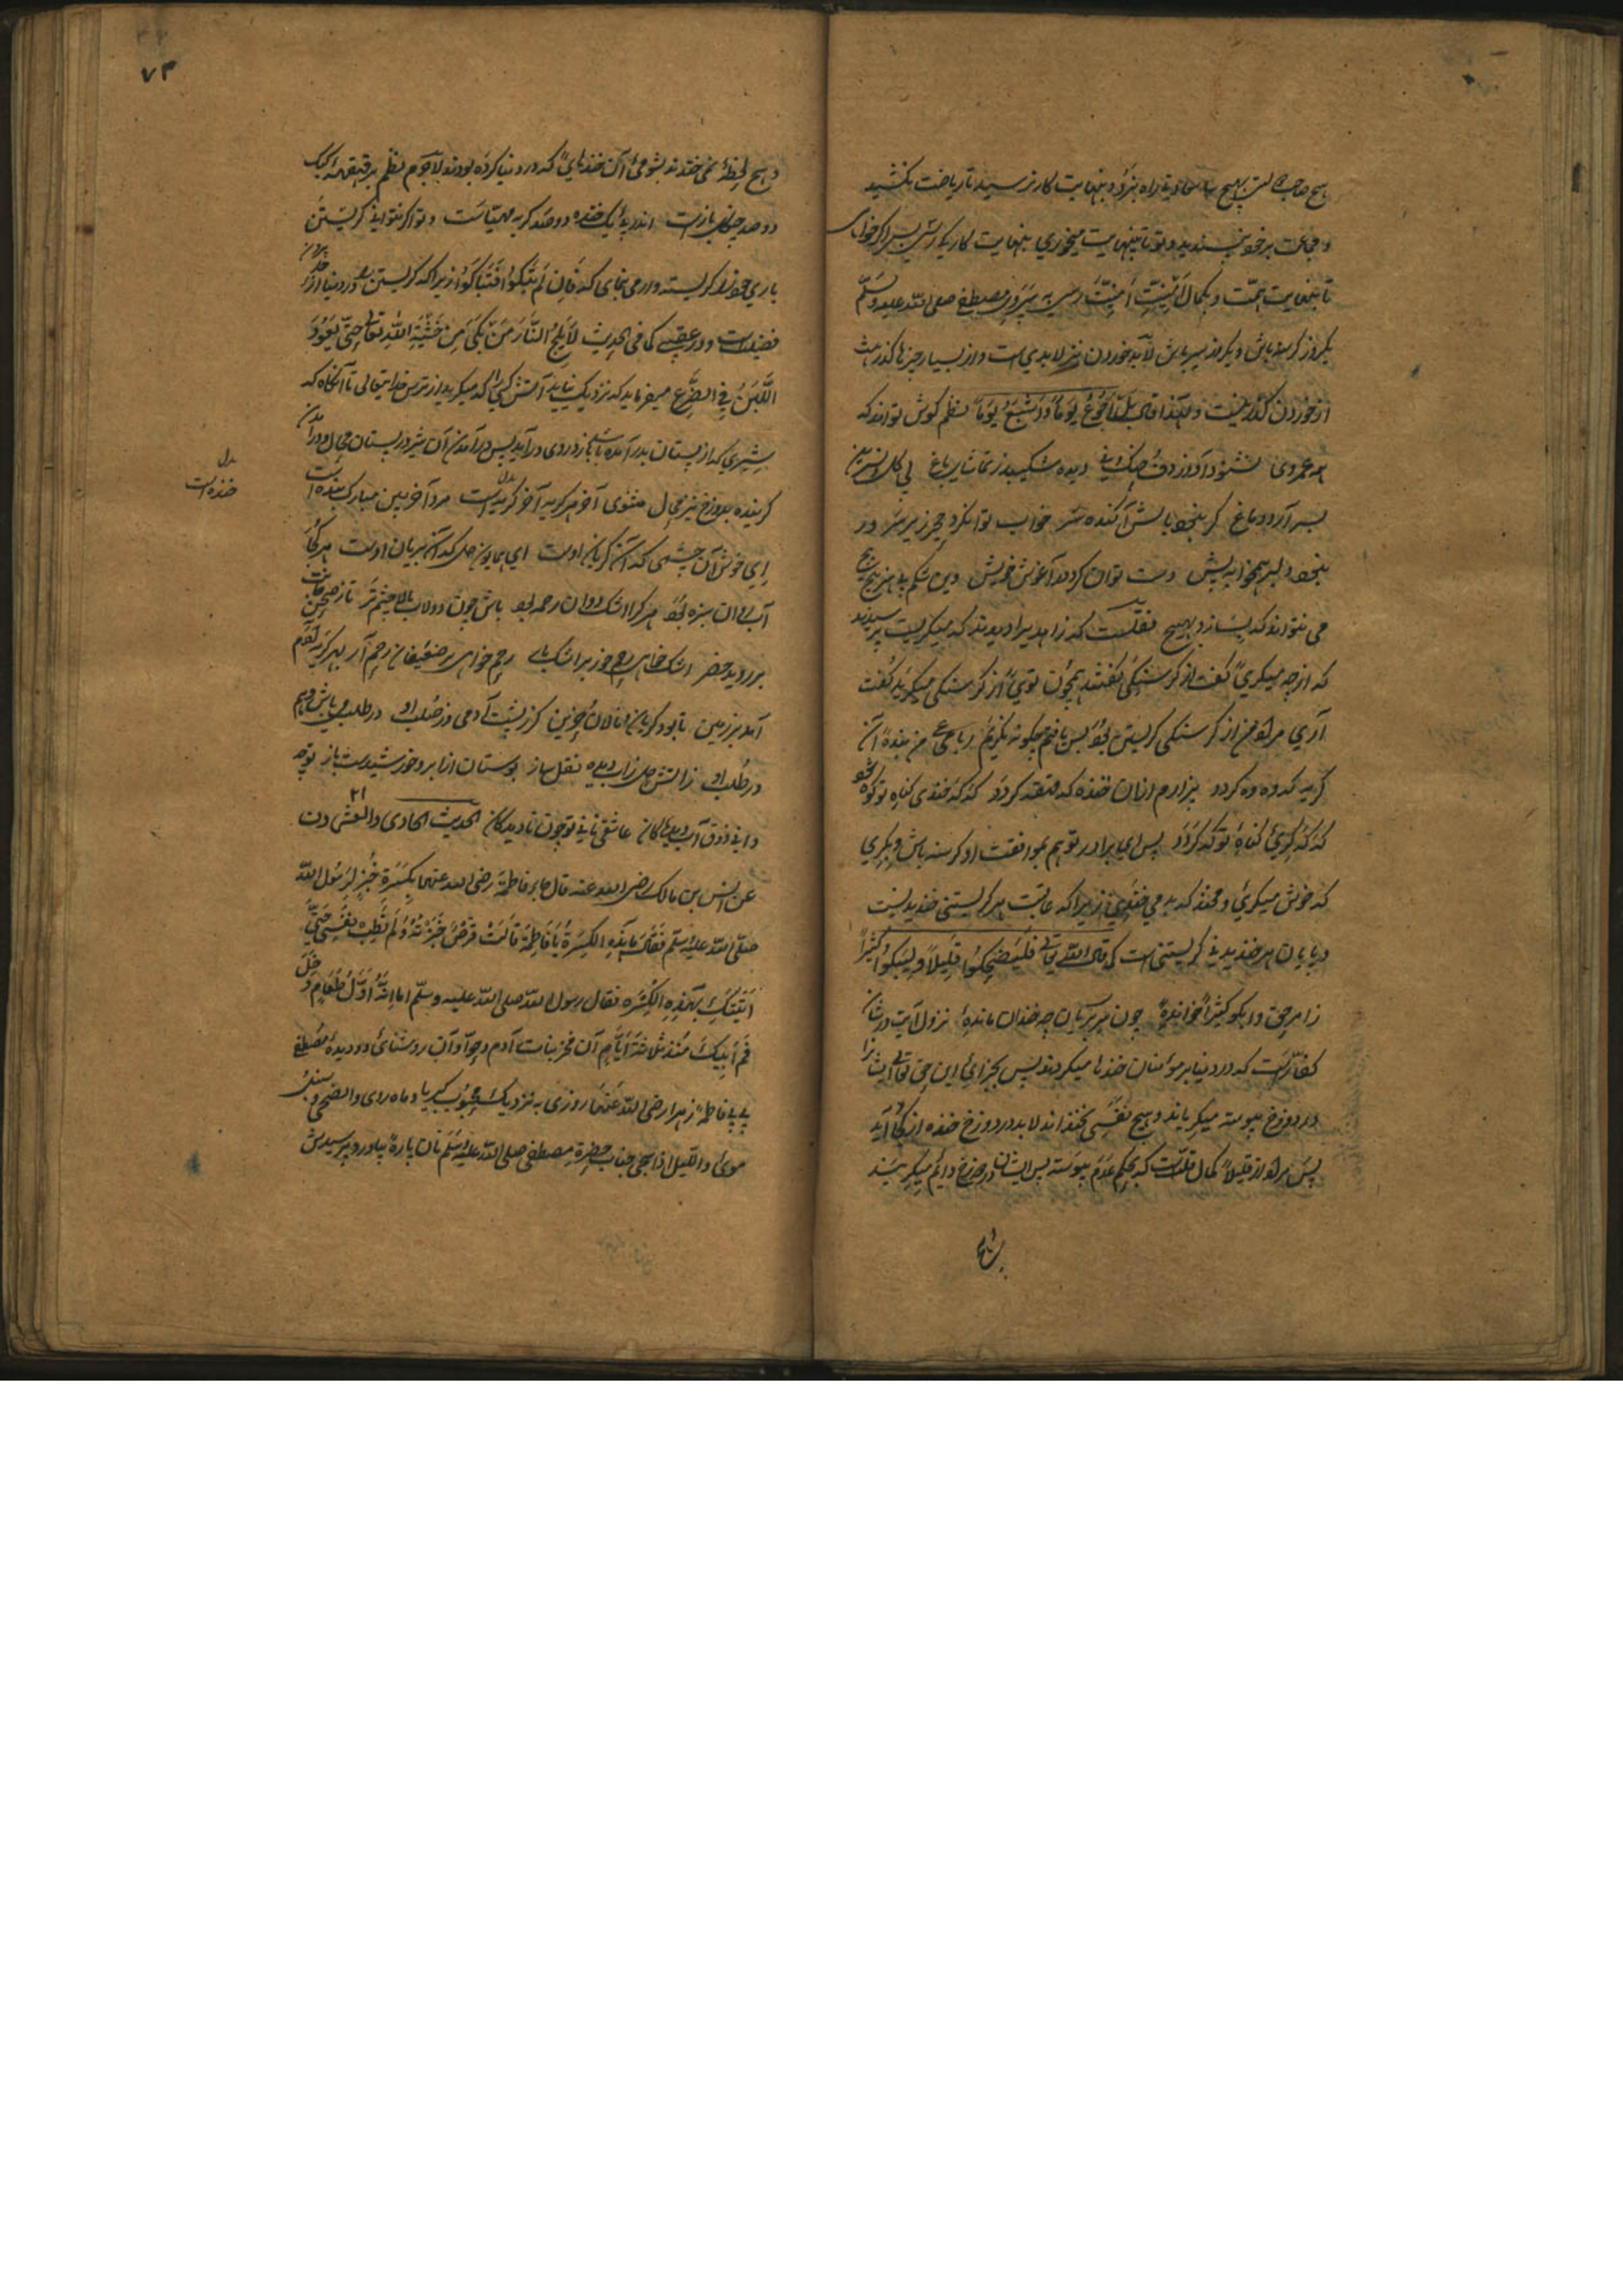 هیچ صاحب راه نبرد و بنهایت کار نرسید تا ریاضت نکشید
و مجاعت بر خود نپسندید و تو تا بنهایت میخوری بنهایت کار
تا بنهایت همت و بکمال امنیت رسی پیرو مصطفی صلی الله علیه وسلم
یکروز گرسنه باش و یکروز سیر باش لابد خوردن نیز لابدی است و از بسیار چیزها گذر هست
از خوردن گذر نیست و لهذا قال بل اجوع یوماً و اشبع یوماً نظم گوش تواند که
همه عمر وی نشنود آواز دف و چنگ و نی دیده شکیبد ز تماشای باغ بی گل و نسرین
بسر آرد دماغ گر نبود بالش آگنده پر خواب توان کرد حجر زیر سر ور
نبود دلبر همخوابه پیش دست توان کرد در آغوش خویش وین شکم بی هنر پیچ پیچ
می نتواند که بسازد بهیچ نقلست که زاهدیرا دیدند که میگریست پرسیدند
که از چه میگریی گفت از گرسنگی گفتند همچون تویی از گرسنگی میگرید گفت
آری مراد من از گرسنگی گریستن بود پس یافتم چگونه نگریم رباعی من بنده آن
گریه که وه وه گردد بیزارم از آن خنده که قهقه گردد که که خندی گناه تو کوه شود
که که گریی گناه تو که گردد پس ای برادر تو هم بموافقت او گرسنه باش و بگری
که خوش میگریی و مخند که بد می خندی زیرا که عاقبت هر گریستنی خندیدنیست
و پایان هر خندیدنی گریستنی است که قال الله تعالی فلیضحکوا قلیلاً و لیبکوا کثیراً
ز امر حق و ابکوا کثیراً خوانده چون سر بریان چه خندان مانده نزول آیت در شان
کفارست که در دنیا بر مؤمنان خندها میکردند پس بجزای این حق تعالی ایشانرا
در دوزخ پیوسته میگریاند و هیچ نفسی نخنداند لابد در دوزخ خنده از کجا آید
پس مراد از قلیلاً کمال قلتست که بحکم عدم پیوسته پس ایشان در دوزخ دائم میگریند
و هیچ
۷۳
و هیچ لحظه نمی خندند بشومی آن خندهای که در دنیا کرده بودند لاجرم نظم بر قهقهه کبک
دو صد چنگل بازست اندر پی یک خنده دو صد گریه مهیاست و تو اگر نتوانی گریستن
باری خود را گریسته وار می نمای که فان لم تبکوا فتباکوا زیرا که گریستن در دنیا از
فضیلتست و در عقبی کما فی الحدیث لا یلج النار من بکی من خشیة الله تعالی حتی یعود
اللبن فی الضرع میفرماید که نزدیک نیاید آتش کسی را که میگرید از ترس خدایتعالی تا آنگاه که
شیری که از پستان بدر آمده باشد باز در وی درآید پس درآمدن آن شیر در پستان محال و درآمدن
گرینده بدوزخ نیز محال مثنوی آخر هر گریه آخر گریه است مرد آخر بین مبارک بنده است
بدل
خنده است
ای خوش آن چشمی که آن گریان اوست ای همایون دل که آن بریان اوست هر کجا
آب روان سبزه بود هر کجا اشک روان رحمه بود باش چون دولاب نالان چشم تر تا ز صحن جانت
بر روید خضر اشک خواهی رحم بر اشک بار رحم خواهی بر ضعیفان رحم آر بهر گریه آدم
آمد بر زمین تا بود گریان و نالان و حزین گر ز پشت آدمی وز صلب او در طلب میباش هم
در طلب او ز آتش دل ز آب دیده نقل ساز بوستان از ابر و خورشیدست باز تو چه
دانی ذوق آب دیدگان عاشق نانی تو چون نادیدگان الحدیث الحادی والعشرون
عن انس بن مالک رضی الله عنه قال جاء فاطمة رضی الله عنها بکسرة خبز لرسول الله
صلی الله علیه وسلم فقال ما هذه الکسرة یا فاطمة قالت قرص خبزته ولم یطب نفسی حتی
اتیتک بهذه الکسره فقال رسول الله صلی الله علیه وسلم اما انه اول طعام دخل
فم ابیک منذ ثلاثة ایام آن فخر بنات آدم و حوا و آن روشنائی دو دیده مصطفی
بی بی فاطمه زهرا رضی الله عنها روزی به نزدیک محبوب کبریا و ماه روی والضحی و سنبل
موی واللیل اذا سجی جناب حضرة مصطفی صلی الله علیه وسلم نان پاره بیاورد پرسیدش